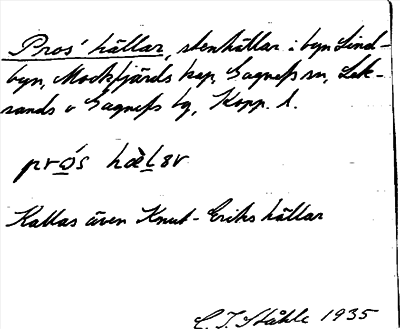 Pros' hällar, stenhällar i byn Lind-
byn, Mockfjärds kap, Gagnefs sn, Lek-
sands o Gagnefs tg, Kopp. l.
prós hàḷər
Kallas även Knut-Eriks hällar
C.I. Ståhle 1935